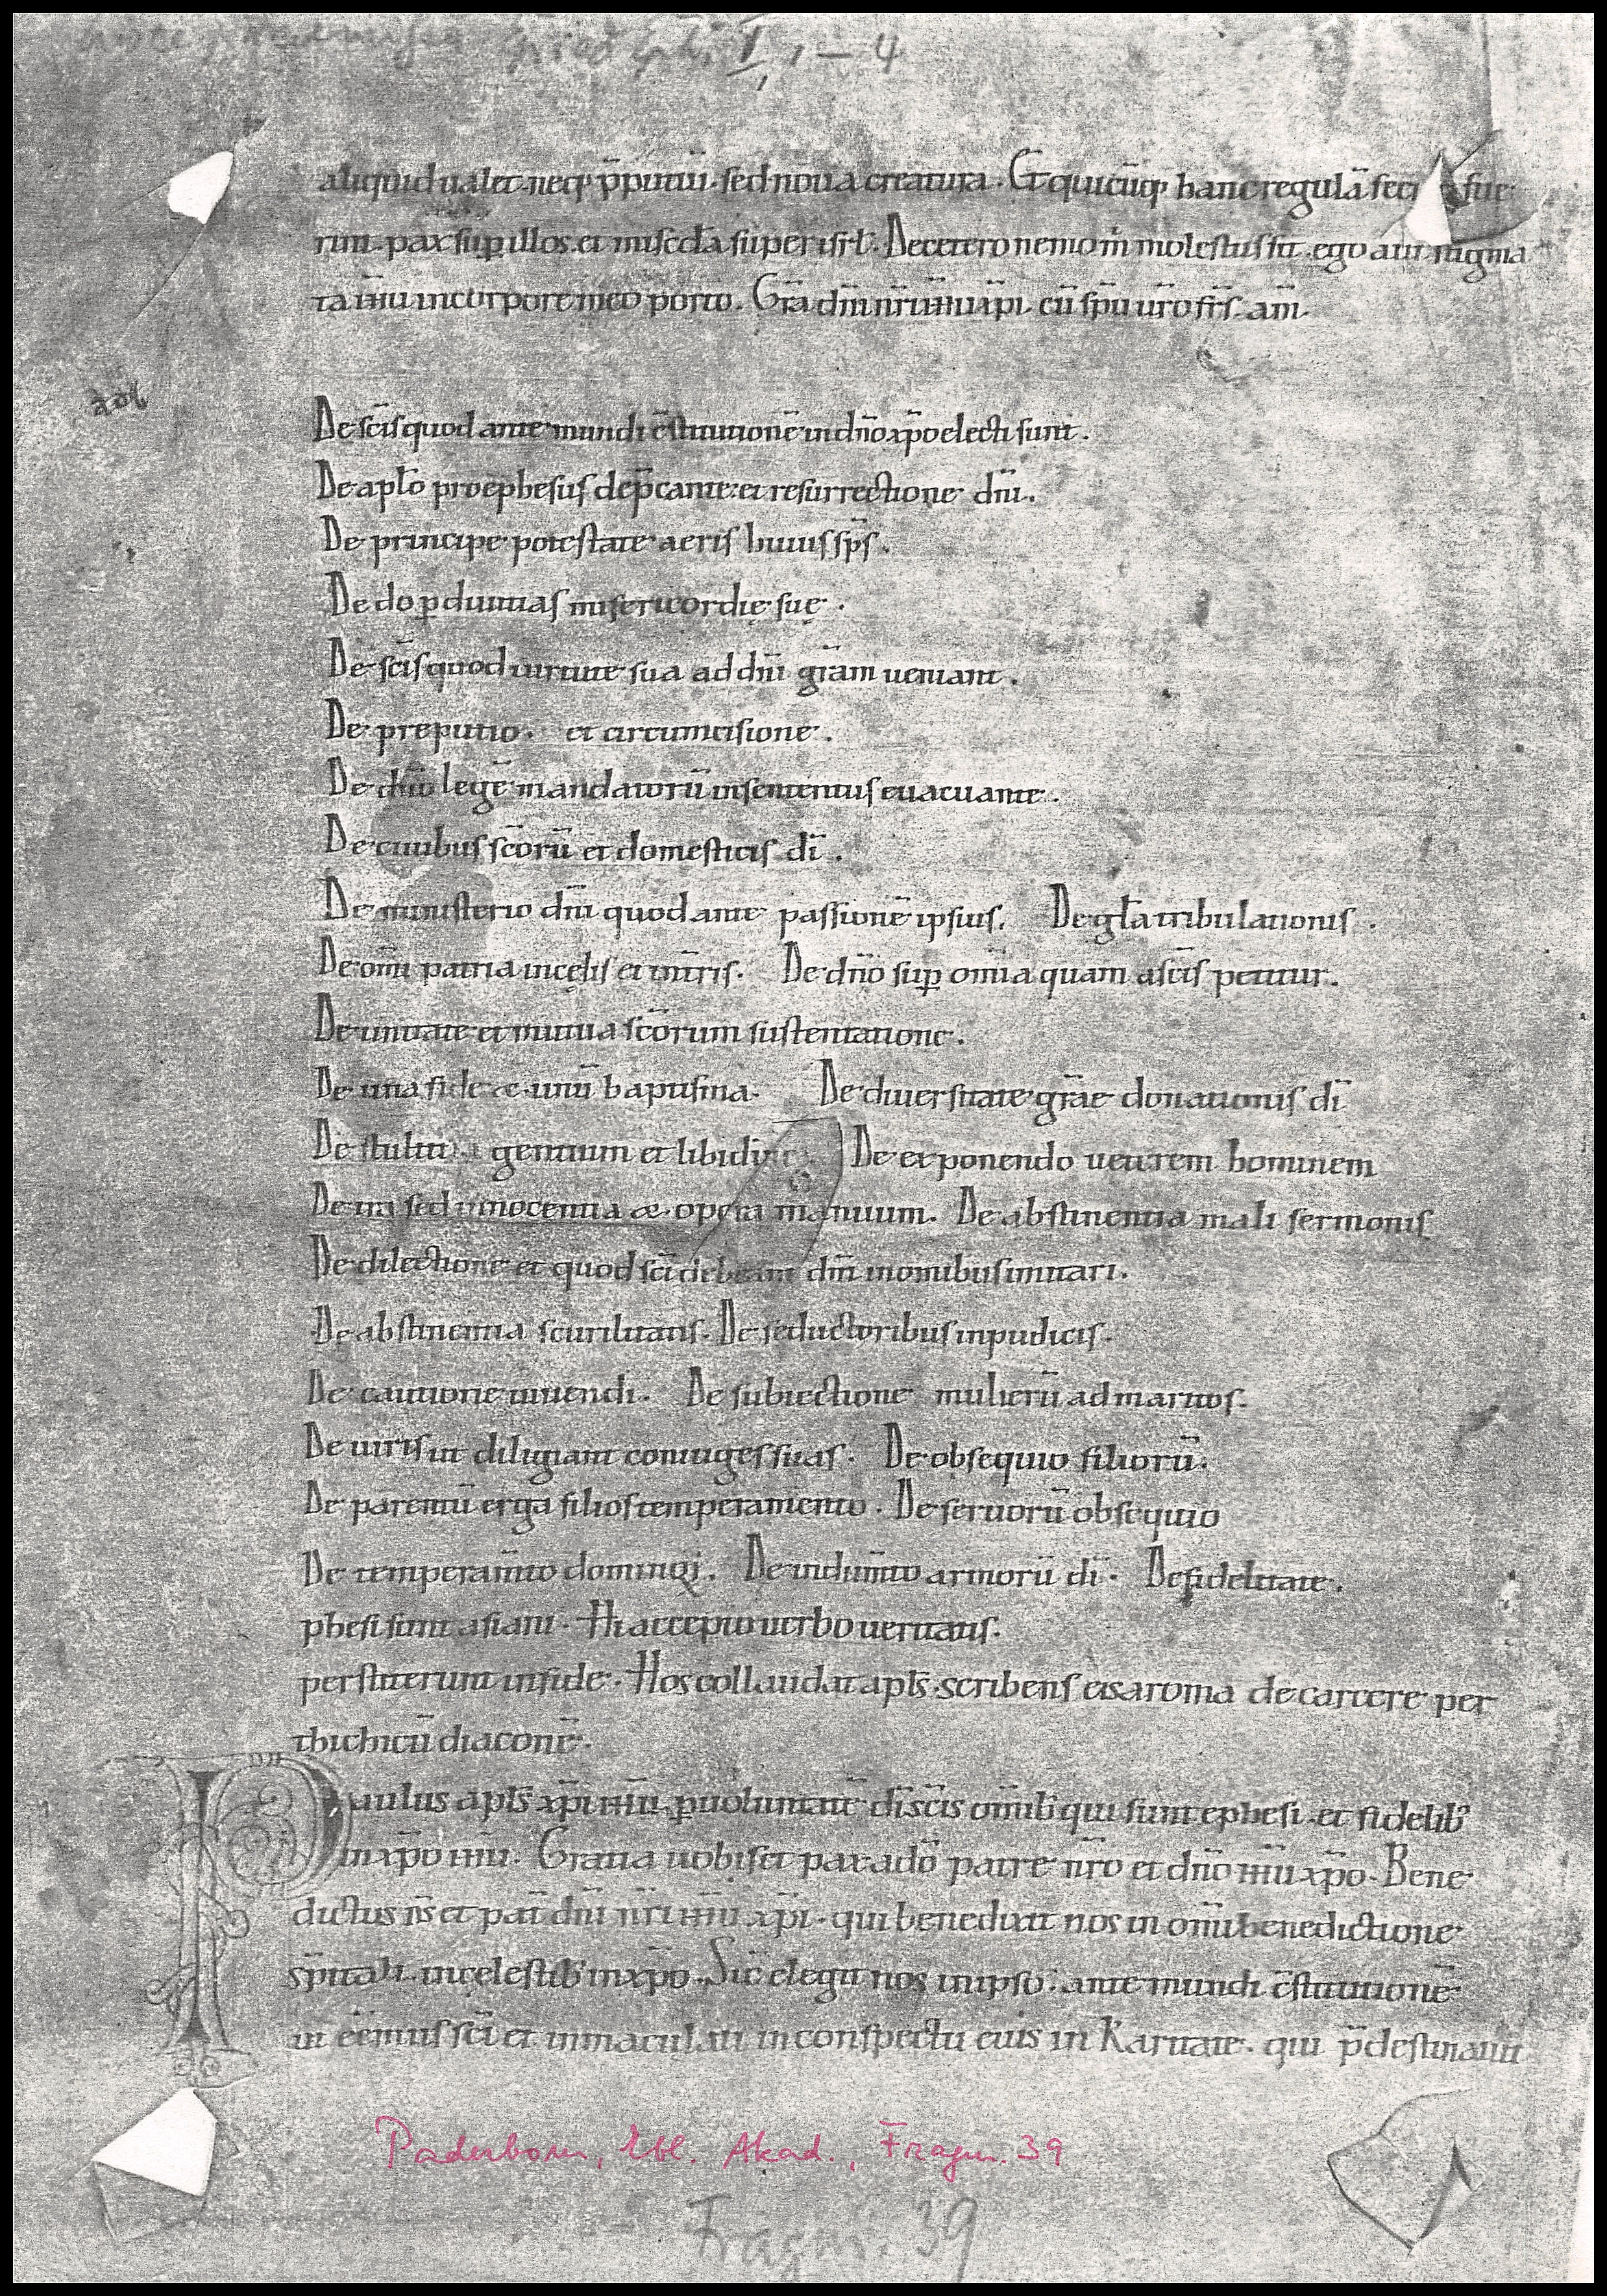 I, 1 – 4
aliquid ualet. neq; p̄putiũ. sed noua creatura. Et quicũq; hanc regulã secuti fue
rint. pax sup̱ illos. et misc̄d̄a super isrl̄. De cetero nemo m̄ molestus sit. ego aut̄ stigma
ta iħu in corpore meo porto. Gr̄a dn̄i nr̄i iħu xp̄i cũ sp̄u ur̄o fr̄s. am̄.
De sc̄is quod ante mundi c̄stitutionē in dn̄o xp̄o electi sunt.
De apl̄o pro ephesus dep̄cante. et resurrectione dn̄i.
De principe potestate aeris huius sp̄s.
De do p̱ diuitias misericordię suę.
De sc̄is quod uirtute sua ad dn̄i gr̄am ueniant.
De preputio. et circumcisione.
De dn̄o legē mandatorũ in sententiis euacuante.
De ciuibus sc̄orũ et domesticis dī.
De ministerio dn̄i quod ante passionē ipsius. De gl̄a tribulationis.
De om̄i patria in cęlis et in tr̄is. De dn̄o sup̱ om̄ia quam a sc̄is petitur.
De unitate et mutua sc̄orum sustentatione.
De una fide & unũ baptisma. De diuersitate gr̄ae donationis dī
De stultitia gentium et libidine De exponendo ueterem hominem
De ira sed innocentia & opera manuum. De abstinentia mali sermonis
De dilectione et quod sc̄i debeant dn̄i in omnibus imitari.
De abstinentia scurilitatis. De seductoribus inpudicis.
De cautione uiuendi. De subiectione mulierũ ad maritos.
De uiris ut diligant coniuges suas. De obsequio filiorũ.
De parentũ erga filios temperamento. De seruorũ obsequio
De temperam̄to dominoꝝ. De indum̄to armorũ dī. De fidelitate.
phesi sunt asiani. Hi accepto uerbo ueritatis.
perstiterunt in fide. Hos collaudat apl̄s. scribens eis a roma de carcere per
thichicũ diaconē.
Paulus apl̄s xp̄i iħu p̱ uoluntatē dī sc̄is om̄ib; qui sunt ephesi. et fidelib;
in xp̄o iħu. Gratia uobis et pax a dō patre nr̄o et dn̄o iħu xp̄o. Bene
dictus d̄s et pat̄ dn̄i nr̄i iħu xp̄i. qui benedixit nos in om̄i benedictione
sp̄itali in cęlestib; in xp̄o. Sic̄ elegit nos in ipso. ante mundi c̄stitutionē
ut eēmus sc̄i et inmaculati in conspectu eius in karitate. qui p̄destinauit
Paderborn, Ebf. Akad., Fragm. 39
Fragm. 39